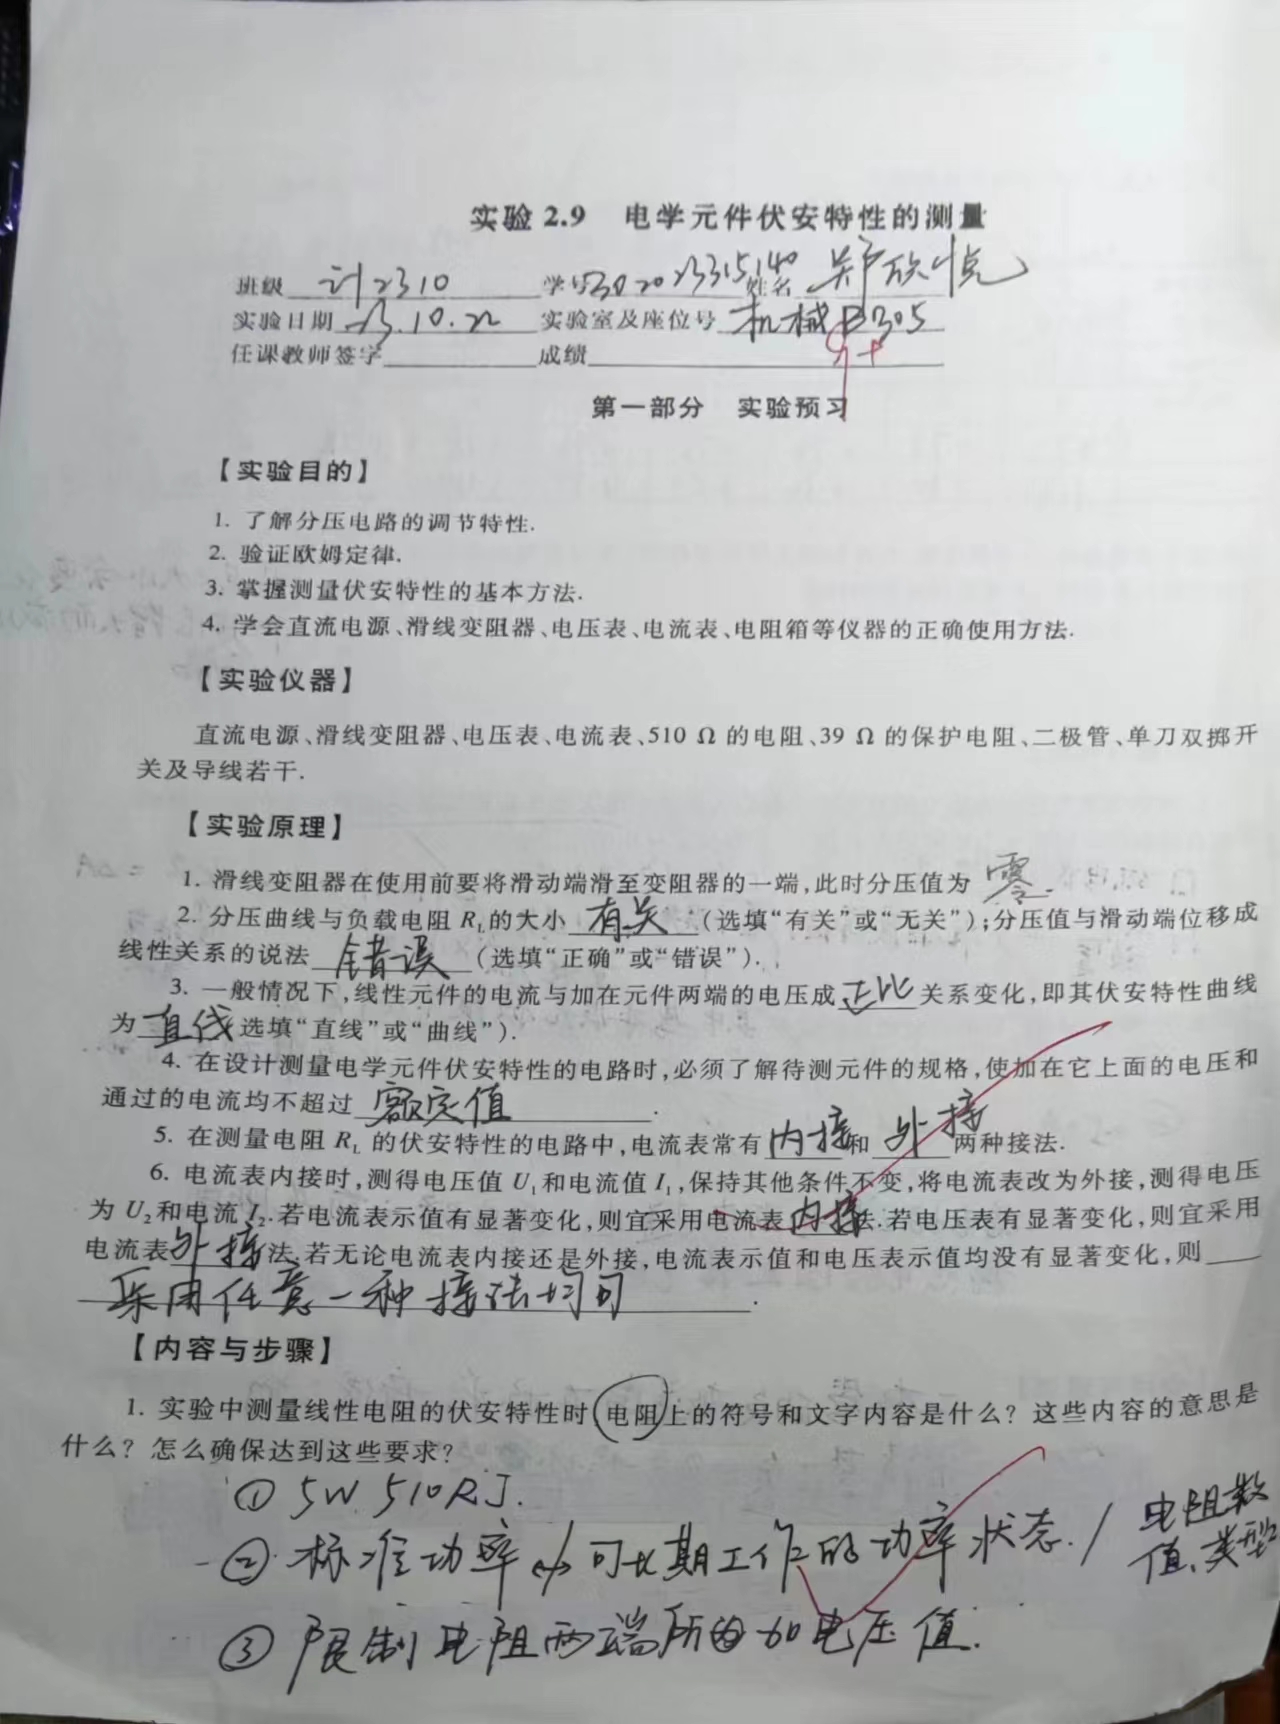 实验 2.9 电学元件伏安特性的测量
班级 计2310 学号 3020 23315140 姓名 郑欣悦
实验日期 23.10.22 实验室及座位号 机械B305
任课教师签字 成绩 9+
第一部分 实验预习
【实验目的】
1. 了解分压电路的调节特性.
2. 验证欧姆定律.
3. 掌握测量伏安特性的基本方法.
4. 学会直流电源、滑线变阻器、电压表、电流表、电阻箱等仪器的正确使用方法.
【实验仪器】
直流电源、滑线变阻器、电压表、电流表、510 Ω 的电阻、39 Ω 的保护电阻、二极管、单刀双掷开
关及导线若干.
【实验原理】
1. 滑线变阻器在使用前要将滑动端滑至变阻器的一端,此时分压值为 零.
2. 分压曲线与负载电阻 RL的大小 有关 (选填“有关”或“无关”);分压值与滑动端位移成
线性关系的说法 错误 (选填“正确”或“错误”).
3. 一般情况下,线性元件的电流与加在元件两端的电压成 正比 关系变化,即其伏安特性曲线
为 直线 选填“直线”或“曲线”).
4. 在设计测量电学元件伏安特性的电路时,必须了解待测元件的规格,使加在它上面的电压和
通过的电流均不超过 额定值 .
5. 在测量电阻 RL 的伏安特性的电路中,电流表常有 内接 和 外接 两种接法.
6. 电流表内接时,测得电压值 U1 和电流值 I1,保持其他条件不变,将电流表改为外接,测得电压
为 U2和电流 I2.若电流表示值有显著变化,则宜采用电流表 内接 法.若电压表有显著变化,则宜采用
电流表 外接 法.若无论电流表内接还是外接,电流表示值和电压表示值均没有显著变化,则
采用任意一种接法均可 .
【内容与步骤】
1. 实验中测量线性电阻的伏安特性时,电阻上的符号和文字内容是什么? 这些内容的意思是
什么? 怎么确保达到这些要求?
① 5W 510RJ.
② 标准功率 可长期工作的功率状态. / 电阻数
值、类型
③ 限制电阻两端所加电压值.